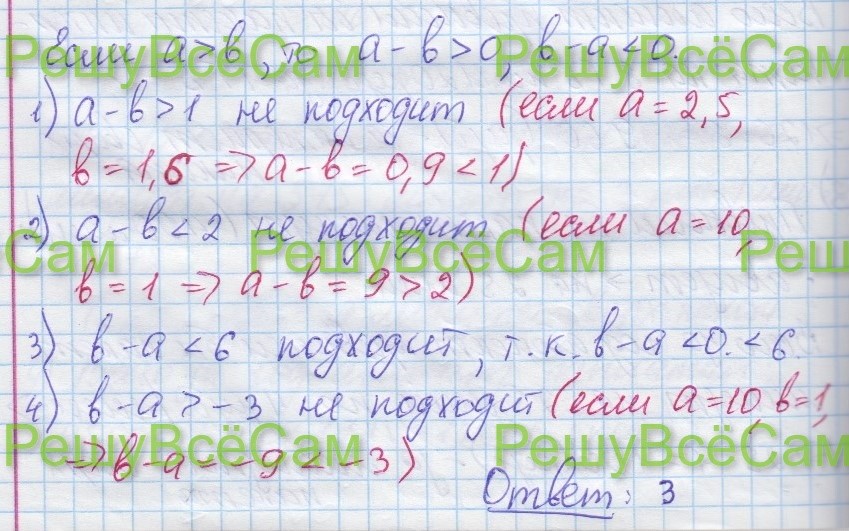 Если а > в, то а - в > 0, в - а < 0.
1) а - в > 1 не подходит (если а = 2,5,
в = 1,6 => а - в = 0,9 < 1)
2) а - в < 2 не подходит (если а = 10,
в = 1 => а - в = 9 > 2)
3) в - а < 6 подходит, т.к. в - а < 0 < 6.
4) в - а > -3 не подходит (если а = 10, в = 1,
=> в - а = -9 < -3)
Ответ: 3
РешуВсёСам РешуВсёСам
Сам РешуВсёСам Реш
РешуВсёСам РешуВсёСам